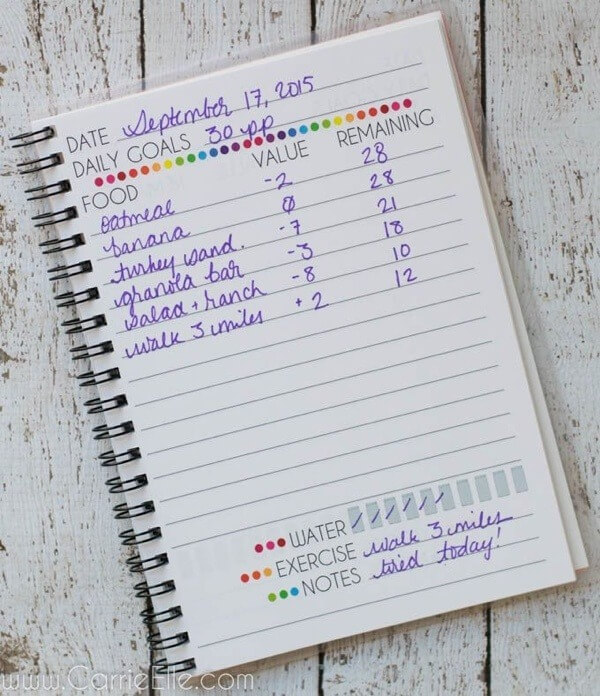 DATE September 17, 2015
DAILY GOALS 30 pp
FOOD VALUE REMAINING
oatmeal -2 28
banana 0 28
turkey sand. -7 21
granola bar -3 18
salad + ranch -8 10
walk 3 miles +2 12
WATER
EXERCISE walk 3 miles
NOTES tired today!
www.CarrieElle.com